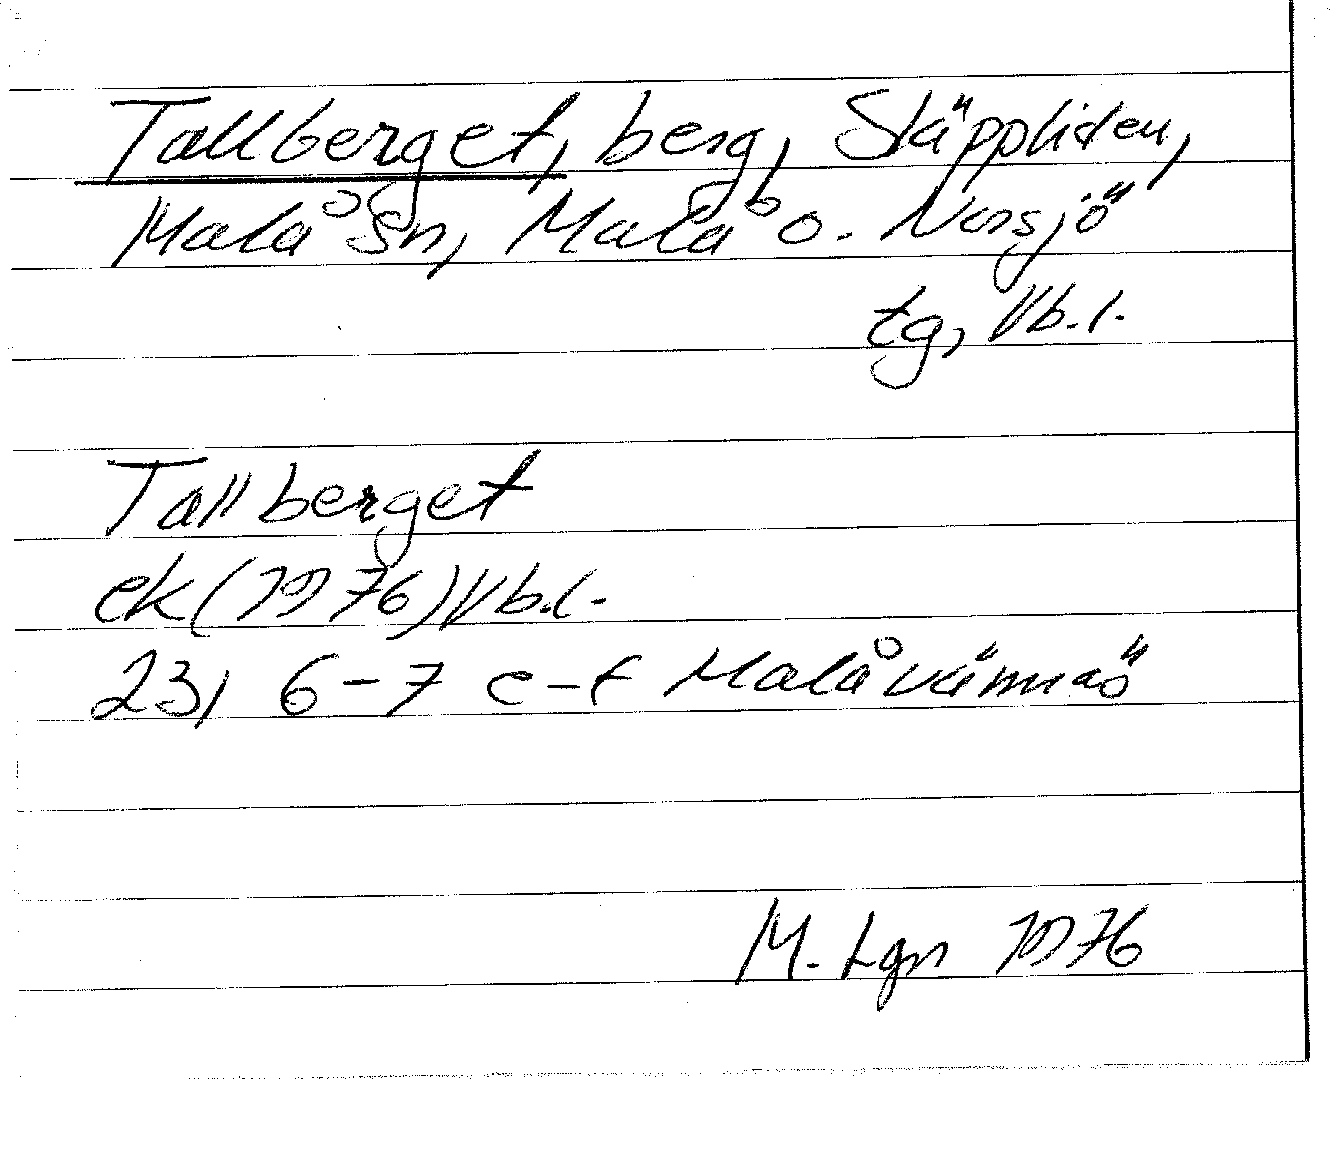 Tallberget, berg, Släppliden,
Malå sn, Malå o. Norsjö
tg, Vb.l.
Tallberget
ek (1976) Vb.l.
23I 6-7 e-f Malåvännäs
M. Lgn 1976